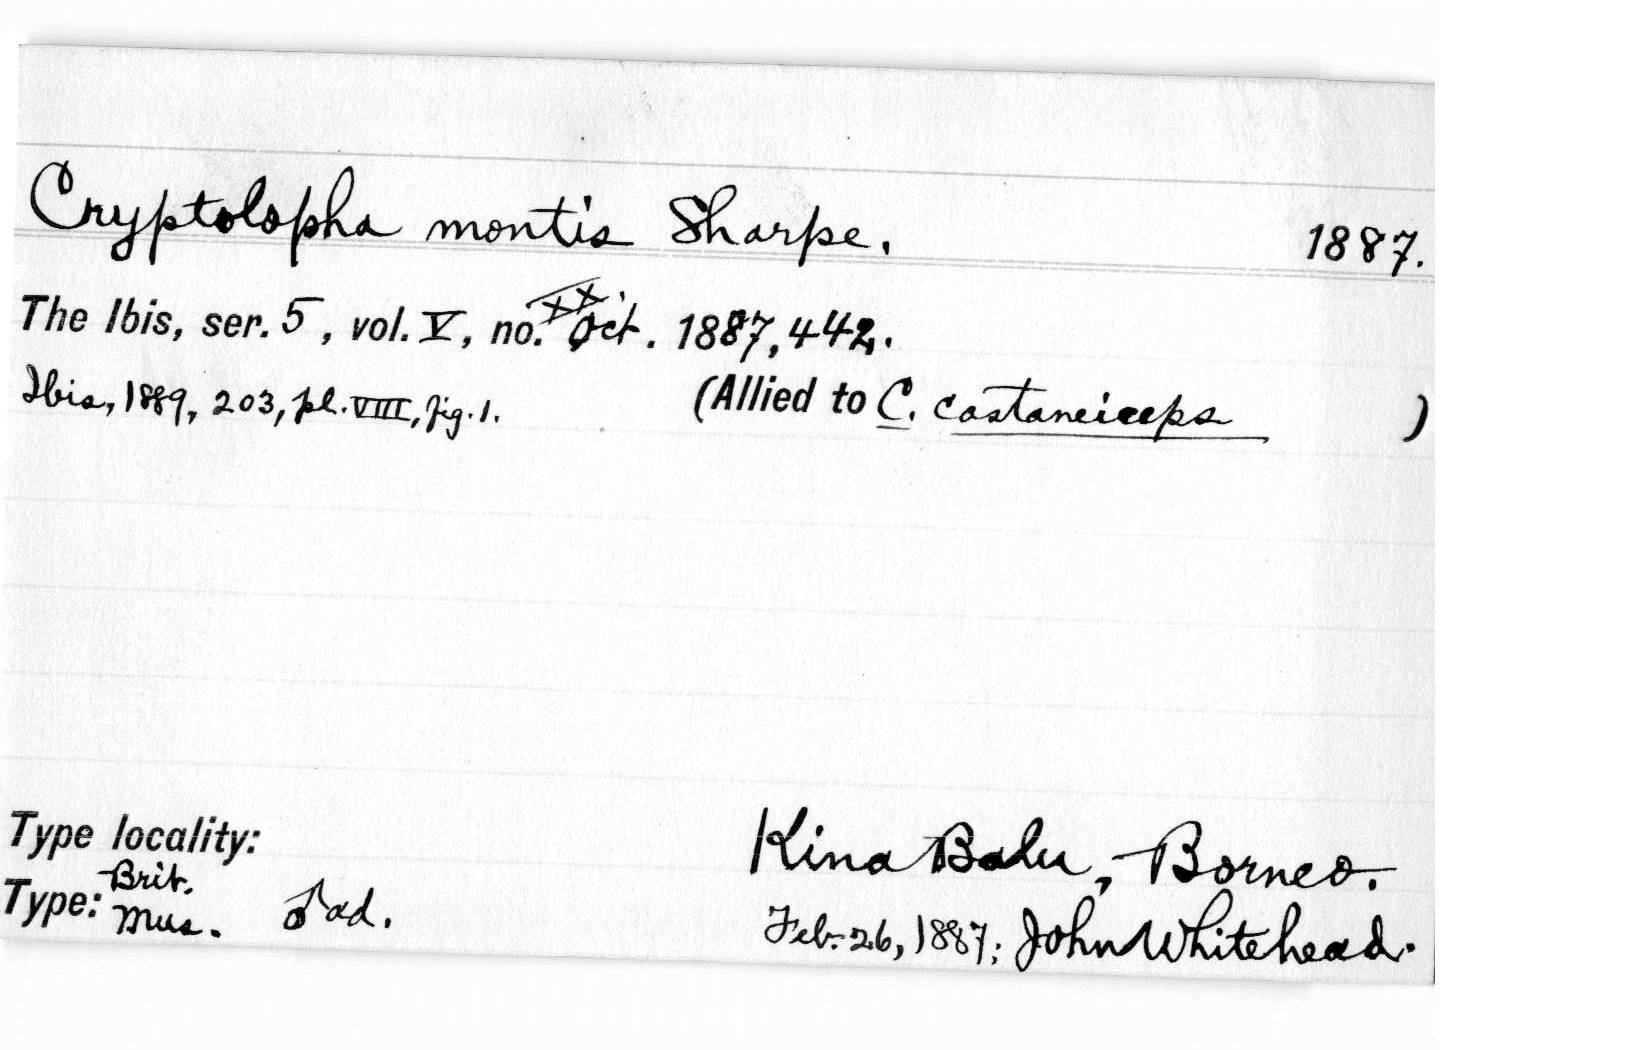 Cryptolopha montis Sharpe. 1887.
The Ibis, ser. 5, vol. V, no. XX, Oct. 1887, 442.
Ibis, 1889, 203, pl. VIII, fig. 1. (Allied to C. castaneiceps )
Type locality: Kina Balu, Borneo.
Type: Brit. Mus. ♂ ad. Feb. 26, 1887; John Whitehead.